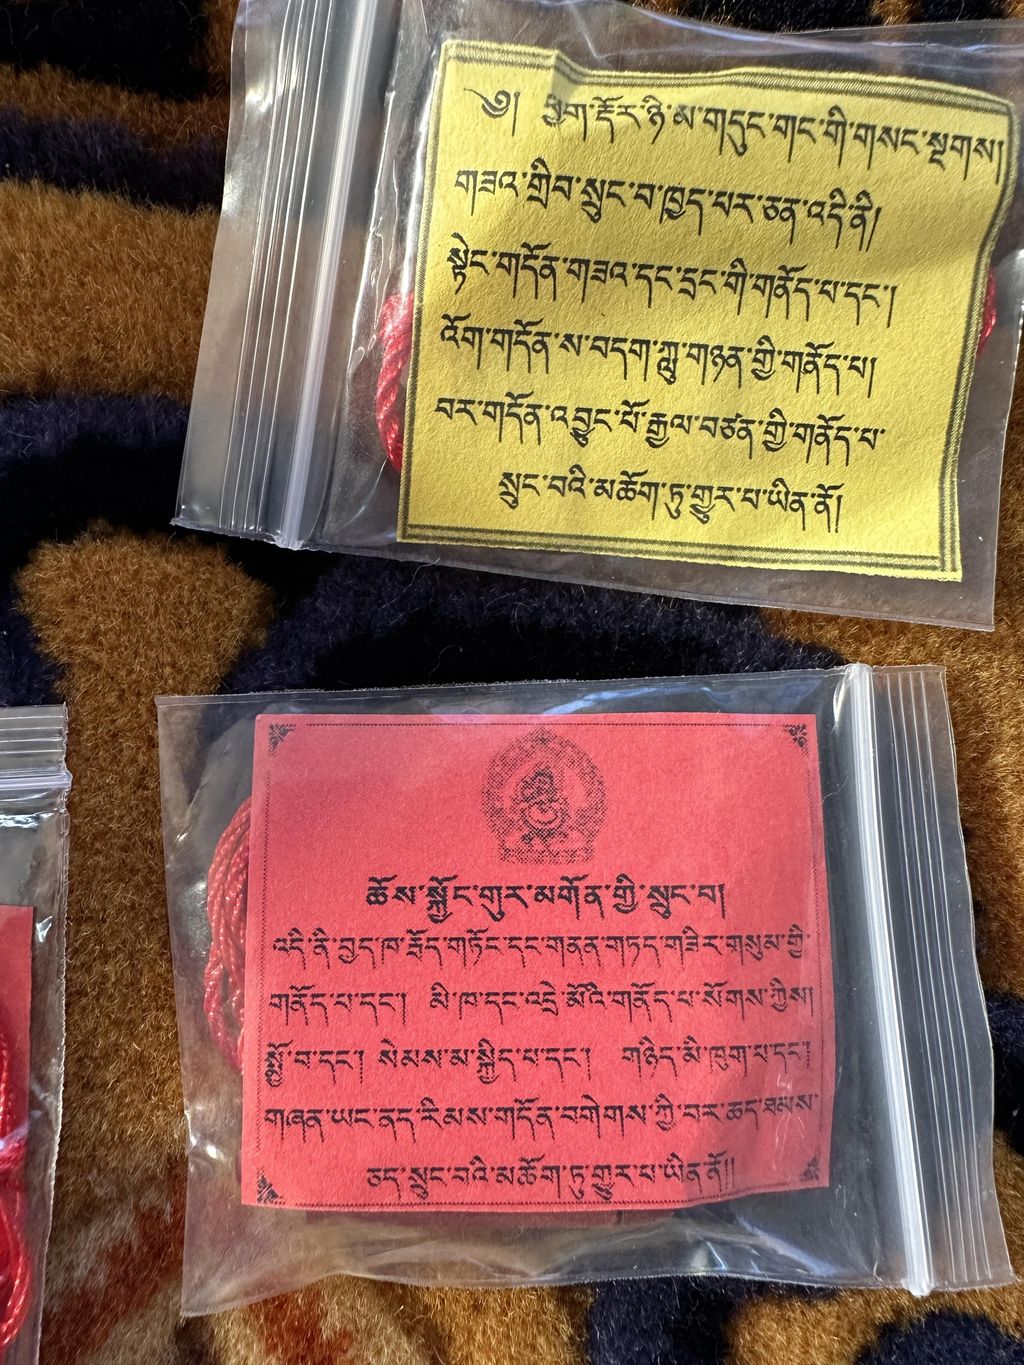 ༄། ཕྱག་རྡོར་ཉི་མ་གདུང་གང་གི་གསང་སྔགས།
གཟའ་གྲིབ་སྲུང་བ་ཁྱད་པར་ཅན་འདི་ནི།
སྟེང་གདོན་གཟའ་དང་དྲང་གི་གནོད་པ་དང་།
འོག་གདོན་ས་བདག་ཀླུ་གཉན་གྱི་གནོད་པ།
བར་གདོན་འབྱུང་པོ་རྒྱལ་བཙན་གྱི་གནོད་པ་
སྲུང་བའི་མཆོག་ཏུ་གྱུར་པ་ཡིན་ནོ།
ཆོས་སྐྱོང་གུར་མགོན་གྱི་སྲུང་བ།
འདི་ནི་བྱད་ཁ་རྦོད་གཏོང་དང་གནན་གཏད་གཟེར་གསུམ་གྱི་
གནོད་པ་དང་། མི་ཁ་དང་འདྲེ་མོའི་གནོད་པ་སོགས་ཀྱིས།
སྨྱོ་བ་དང་། སེམས་མ་སྐྱིད་པ་དང་། གཉིད་མི་ཁུག་པ་དང་།
གཞན་ཡང་ནད་རིམས་གདོན་བགེགས་ཀྱི་བར་ཆད་ཐམས་
ཅད་སྲུང་བའི་མཆོག་ཏུ་གྱུར་པ་ཡིན་ནོ།།